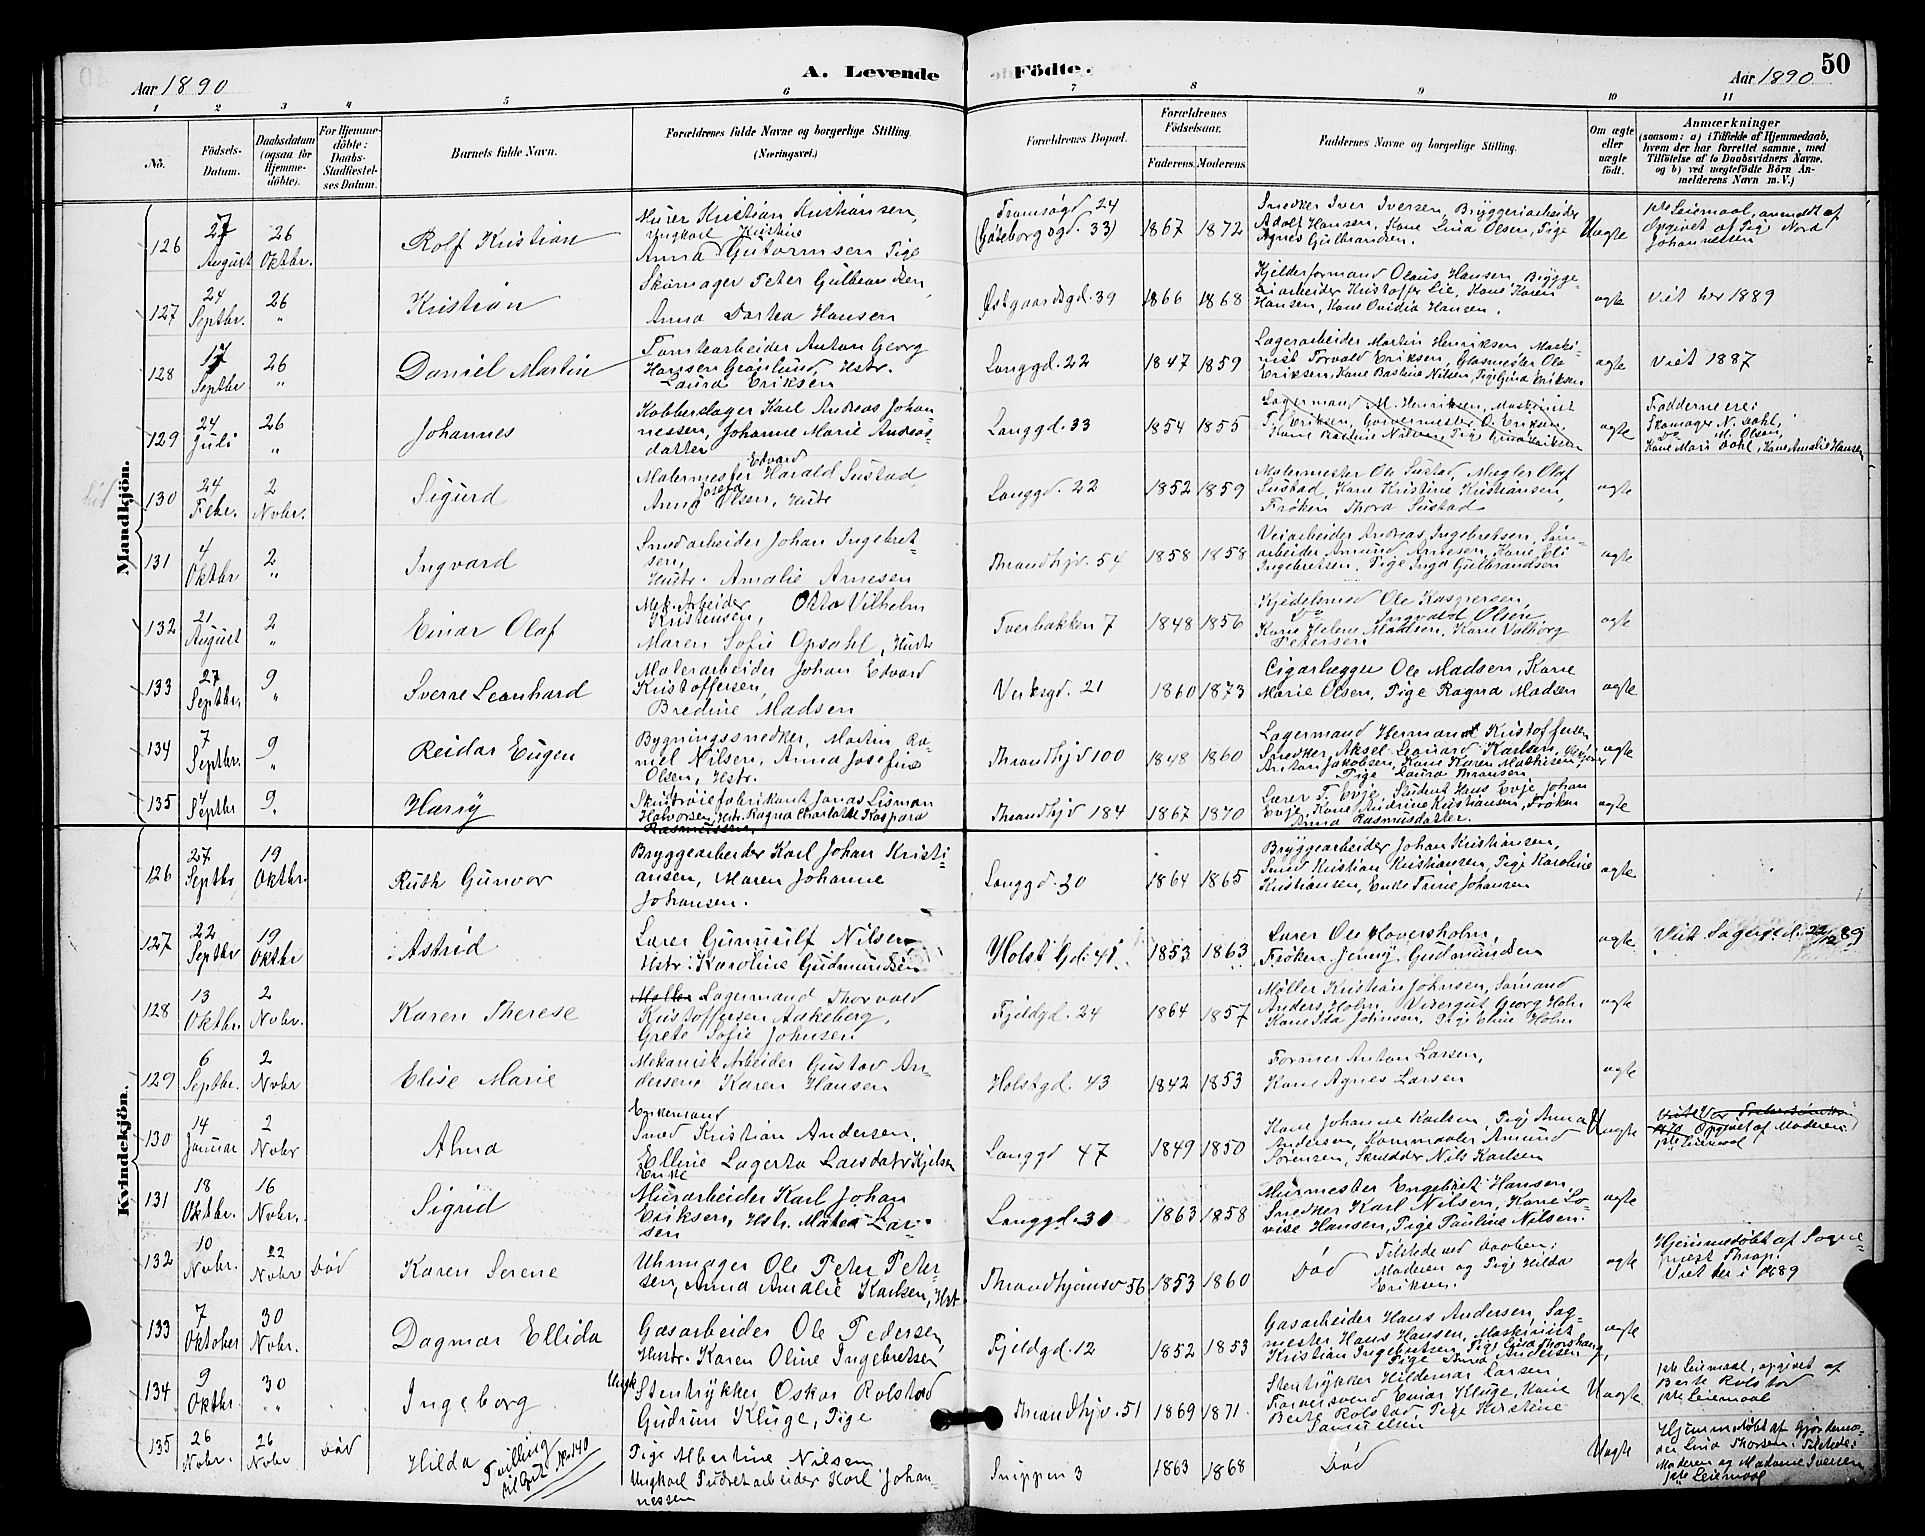 Aar 1890
A. Levende
Födte.
Aar 1890
50
1 2 3 4 5 6 7 8 9 10 11
No.
Födsels-
Datum.
Daabsdatum
(ogsaa for
Hjemme-
döbte).
For Hjemme-
döbte:
Daabs-
Stadfæstel-
ses Datum.
Barnets fulde Navn.
Forældrenes fulde Navne og borgerlige Stilling.
(Næringsvei.)
Forældrenes Bopæl.
Forældrenes
Födselsaar.
Faderens. Moderens.
Faddernes Navne og borgerlige Stilling.
Om ægte
eller
uægte
födt.
Anmærkninger
(saasom: a) i Tilfælde af Hjemmedaab,
hvem der har forrettet samme, med
Tilföielse af to Daabsvidners Navne.
og b) ved uægtefödte Börn An-
melderens Navn m. V.)
Mandkjön.
126
27
August
26
Oktbr.
Rolf Kristian
Murer Kristian Kristiansen,
Ungkarl Kristine
Anna Gutormsen Pige
Tromsøgd 24
(Gøteborgsgd. 33)
1867 1872
Snedker Iver Iversen, Bryggeriarbeider
Adolf Hansen, Kone Lina Olsen, Pige
Agnes Gulbrandsen.
Uægte
1ste Leiemaal, anmeldt af
Opgivet af Pige Nora
Johannessen
127
24
Septbr.
26
"
Kristian
Skomager Peter Gulbrandsen,
Anna Dortea Hansen
Østgaardsgd. 39
1866 1868
Kjelderformand Olaus Hansen, Brygge-
riarbeider Kristoffer Lie, Kone Karen
Hansen, Kone Ovidia Hansen.
ægte
Viet her 1889
128
17
Septbr
26
"
Daniel Martin
Tomtearbeider Anton Georg
Hansen Grønlund, Hstr.
Laura Eriksen
Langgd. 22
1847 1859
Lagerarbeider Martin Henriksen, Maski-
nist Torvald Eriksen, Glasmester Ole
Eriksen, Kone Bastine Nilsen, Pige Gina Eriksen
ægte
Viet 1887
129
24
Juli
26
"
Johannes
Kobberslager Karl Andreas Johan
nessen, Johanne Marie Andrea-
datter
Langgd. 33
1854 1855
Lagermand M. Henriksen, Maskinist
T. Eriksen, O. Eriksen,
Kone Bastine Nilsen, Pige Gina Eriksen
ægte
Fadderne ere:
Skomager N. Dahl,
Do M. Olsen,
Kone Mari Dahl, Kone Amalie Hansen
130
24
Febr.
2
Novbr.
Sigurd
Edvard
Malermester Harald Sustad
Josefa
Anna Olsen, Hustr
Langgd. 22
1852 1859
Malermester Ole Sustad, Megler Olaf
Sustad, Kone Kristine Kristiansen,
Frøken Thora Sustad
ægte
131
4
Oktbr
2
"
Ingvard
Smedarbeider Johan Ingebret-
sen,
Hustr. Amalie Arnesen
Thrandhjv. 54
1858 1858
Veiarbeider Andreas Ingebretsen,
arbeider Amund Arnesen, Kone
Ingebretsen, Pige Inga Gulbrandsen
ægte
132
21
August
2
"
Einar Olaf
Mek. Arbeider Otto Vilhelm
Kristensen,
Maren Sofie Opsahl, Hustr
Tverbakken 7
1848 1856
Kjedelsmed Ole Kaspersen,
Do Ingvald Olsen
Kone Helene Madsen, Kone Valborg
Petersen
ægte
133
27
Septbr.
9
"
Sverre Leonhard
Malerarbeider Johan Edvard
Kristoffersen,
Bredine Madsen
Verksgd. 21
1860 1873
Cigarlægger Ole Madsen, Kone
Marie Olsen, Pige Ragna Madsen
ægte
134
7
Septbr.
9
"
Reidar Eugen
Bygningssnedker, Martin Ra-
mel Nilsen, Anna Josefine
Olsen, Hstr.
Thrandhjv 100
1848 1860
Lagermand Herman Kristoffersen
Snedker Aksel Leonard Karlsen,
Anton Jakobsen, Kone Karen Mathisen,
Pige Laura Thransen
ægte
135
4
Septbr
9
"
Harry
Skotrøiefabrikant Jonas Lisman
Halvorsen, Hstr. Ragna Charlotte Kaspara
Rasmussen,
Thrandhjv 184
1867 1870
Lærer T. Evje, Student Hans Evje, Johan
Evje, Kone Andrine Kristiansen, Frøken
Anna Rasmusdatter.
ægte
Kvindekjön.
126
27
Septbr
19
Oktbr.
Ruth Gunvor
Bryggearbeider Karl Johan Kristi-
ansen, Maren Johanne
Johansen.
Langgd. 30
1864 1865
Bryggearbeider Johan Kristiansen,
Smed Kristian Kristiansen, Pige Karoline
Kristiansen, Enke Trine Johansen
ægte
127
22
Septbr
19
Oktbr
Astrid
Lærer Gunnulf Nilsen
Hstr. Karoline Gudmundsen
Holst Gd. 41
1853 1863
Lærer Ole Hoversholm,
Frøken Jenny Gudmundsen
ægte
Viet 22/12 89
128
13
Oktbr.
2
Novbr.
Karen Therese
Møller Lagermand Thorvald
Kristoffersen Aakeberg,
Grete Sofie Johnsen
Fjeldgd. 24
1864 1857
Møller Kristian Johnsen, Sømand
Anders Holm, Visergut Georg Holm
Kone Ida Johnsen, Pige Eline Holm
ægte
129
6
Septbr.
2
Novbr
Elise Marie
Mekanisk Arbeider Gustav An-
dersen Karen Hansen
Holstgd. 43
1842 1853
Former Anton Larsen,
Kone Agnes Larsen
ægte
130
14
Januar
2
Novbr
Alma
Enkemand
Smed Kristian Andersen,
Elline Lagerta Larsdatr Kjelsen
Enke
Langgd 47
1849 1850
Kone Johanne Karlsen, Pige Anna
Andersen, Amund
Sørensen, Skrædder Nils Karlsen
Uægte
Opgivet af Moderen
1ste Leiemaal
131
18
Oktbr.
16
Novbr.
Sigrid
Murarbeider Karl Johan
Eriksen, Hstr. Matea Lar-
sen
Langgd. 31
1863 1858
Murmester Engebret Hansen,
Snedker Karl Nilsen, Kone Lo-
vise Hansen, Pige Pauline Nilsen.
ægte
132
10
Novbr.
22
Novbr
Død
Karen Serene
Uhrmager Ole Peter Peter-
sen, Anna Amalie Karlsen, Hstr
Thrandhjemsv 56
1853 1860
Død
Tilstede ved Daaben:
Moderen og Pige Hilda
Eriksen.
ægte
Hjemmedøbt af Sogne-
præst Thrap.
Viet her i 1889
133
7
Oktober
30
Novbr.
Dagmar Ellida
Gasarbeider Ole Pedersen,
Hustr. Karen Oline Ingebretsen
Fjeldgd. 12
1852 1853
Gasarbeider Hans Andersen, Sag-
mester Hans Hansen, Maskinist
Kristian Ingebretsen, Pige Lina Thorshaug,
Pige Anna Andersen
ægte
134
9
Oktbr.
30
" "
Ingeborg
Ungk. Stentrykker Oskar Rolstad
Gudrun Kluge, Pige
Thrandhjv. 51
1869 1871
Stentrykker Hildemar Larsen
Farversvend Einar Kluge, Kone
Berte Rolstad Pige Kirstine
Samuelsen
Uægte
1ste Leiemaal, opgivet af
Berte Rolstad
1ste Leiemaal
135
26
Novbr.
26
Novbr
Død
Hilda
Tvilling
til Gut No. 140
Pige Albertine Nilsen
Ungkarl Pudretarbeider Karl Johan-
nessen
Snippen 3
1863 1868
Død
Uægte
Hjemmedøbt af Gjordemo-
der Lina Thorsen. Tilstede:
Moderen og Madame Iversen
1ste Leiemaal